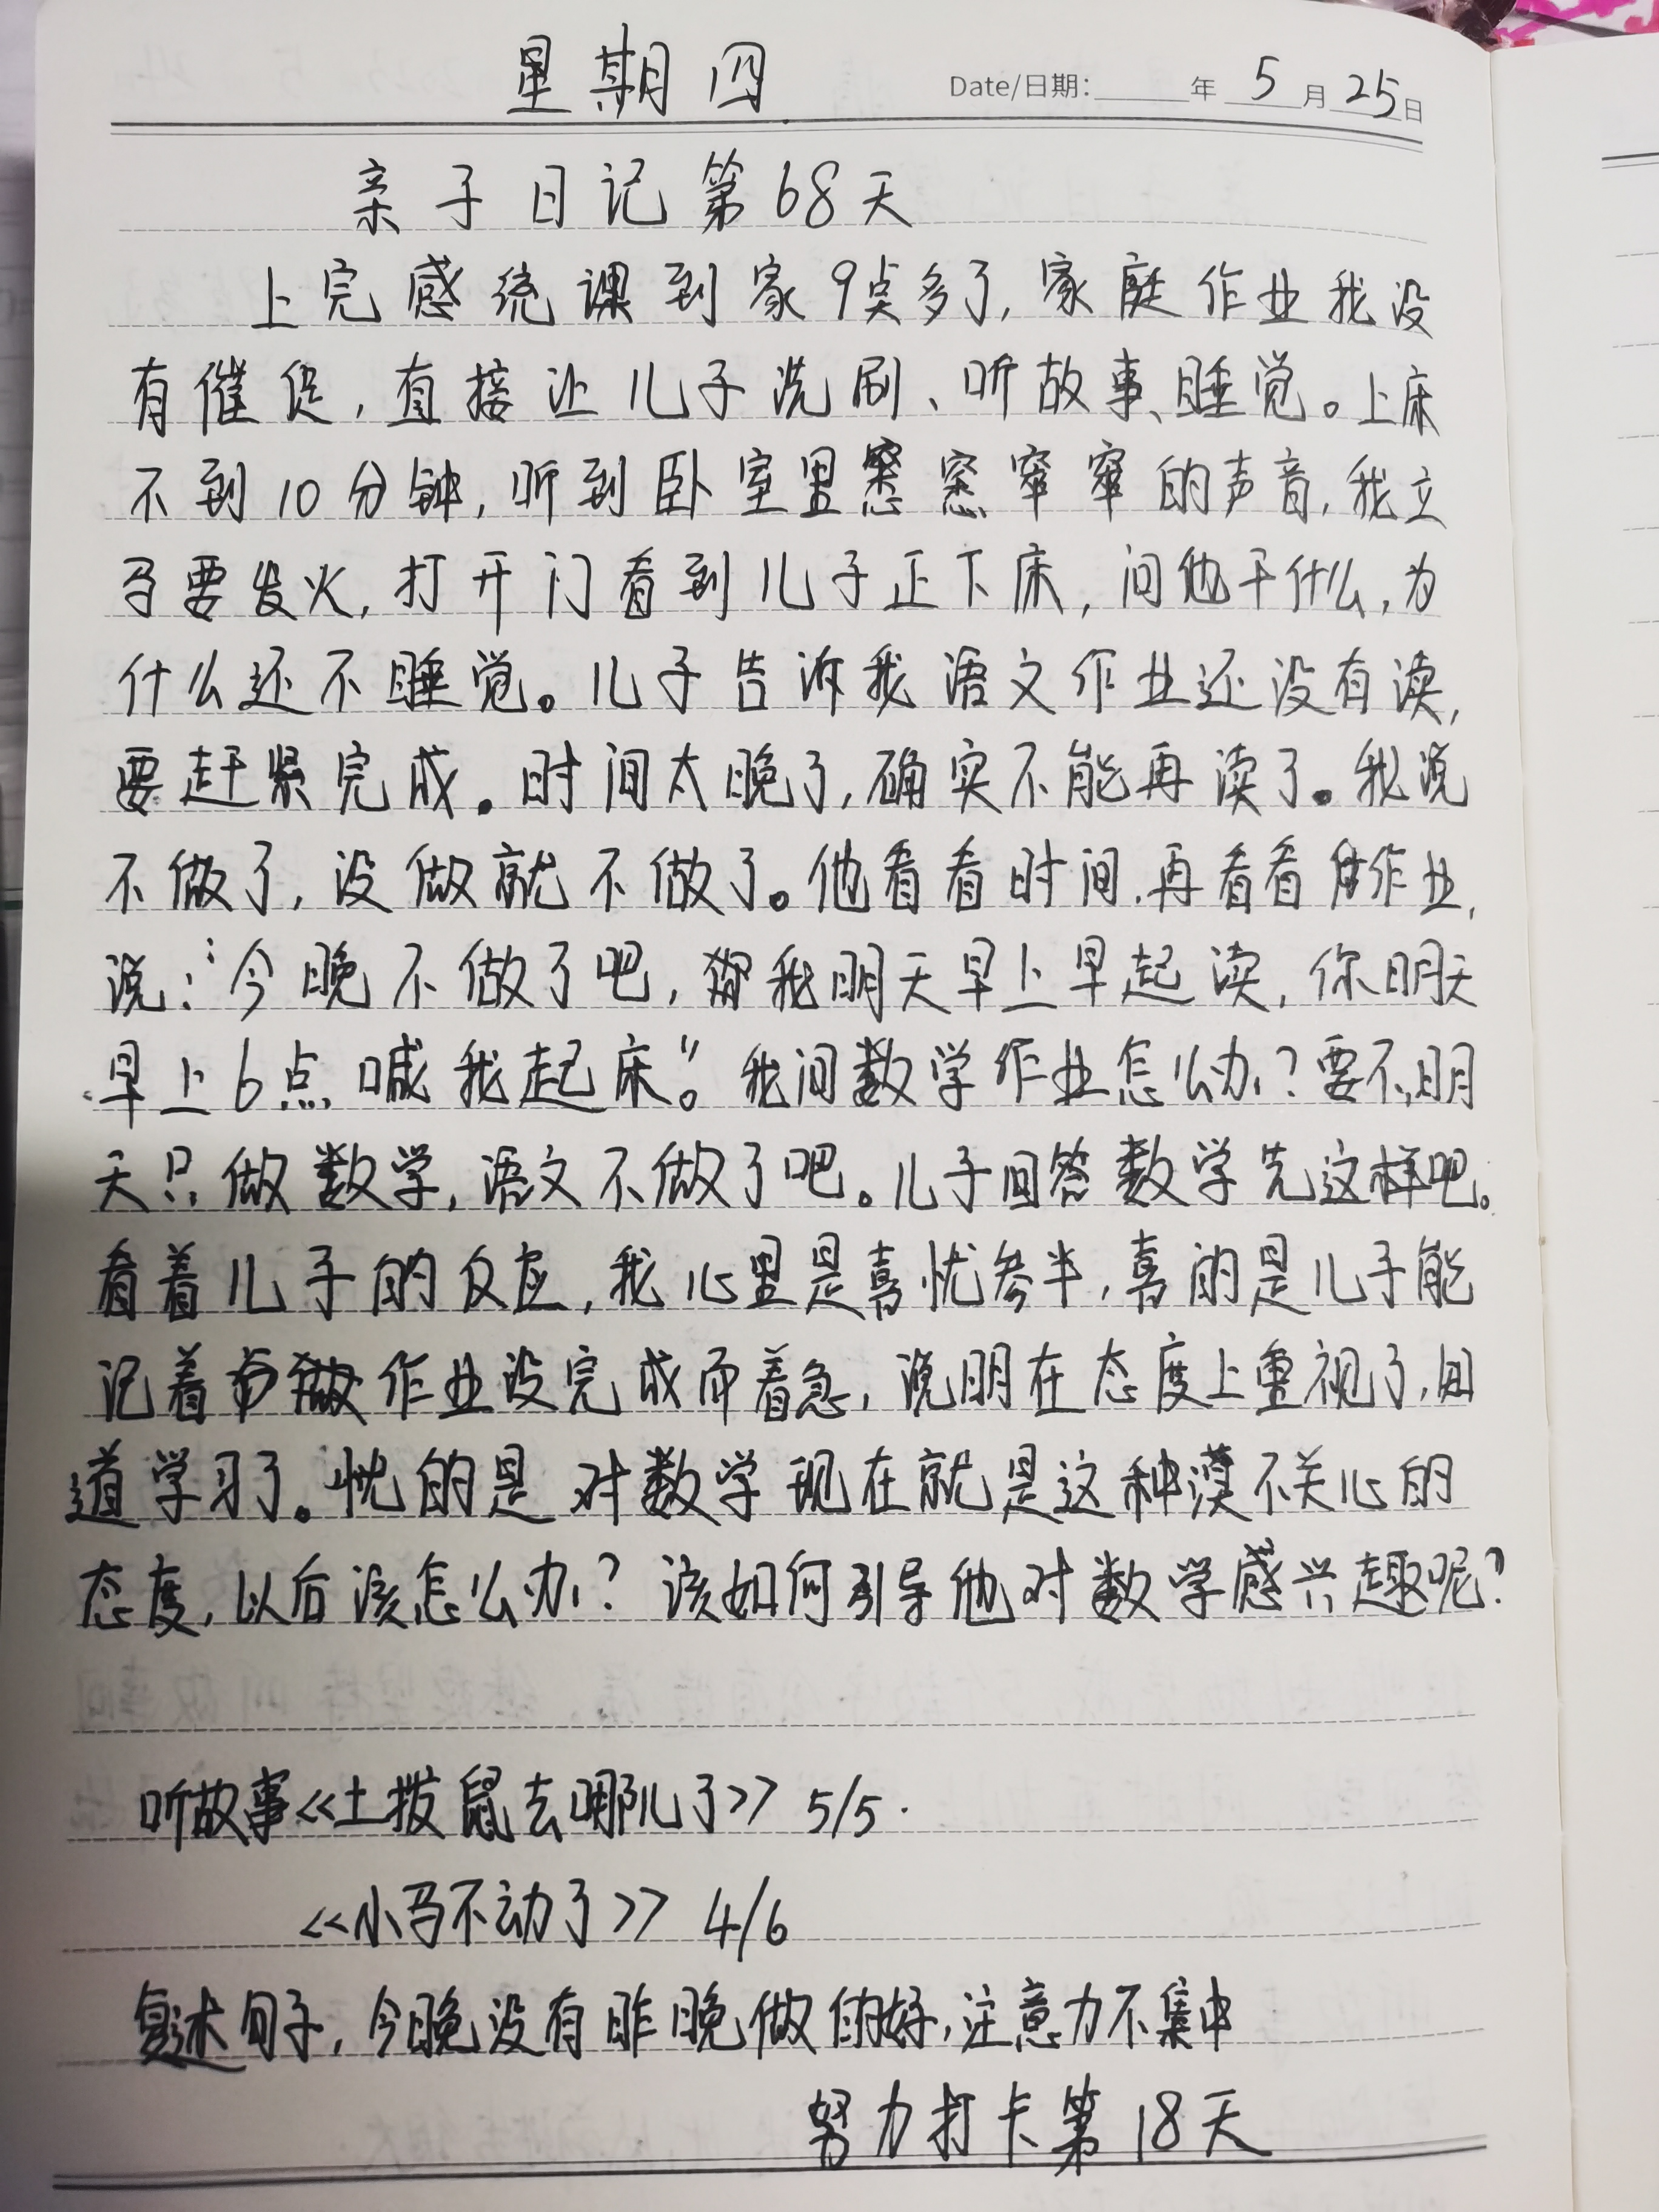 星期四
Date/日期: 年 5 月 25 日
亲子日记第68天
上完感统课到家9点多了,家庭作业我没
有催促,直接让儿子洗刷、听故事、睡觉。上床
不到10分钟,听到卧室里窸窸窣窣的声音,我立
马要发火,打开门看到儿子正下床,问他干什么,为
什么还不睡觉。儿子告诉我语文作业还没有读,
要赶紧完成。时间太晚了,确实不能再读了。我说
不做了,没做就不做了。他看看时间,再看看作业,
说:“今晚不做了吧,我明天早上早起读,你明天
早上6点喊我起床”。我问数学作业怎么办?要不,明
天只做数学,语文不做了吧。儿子回答数学先这样吧。
看着儿子的反应,我心里是喜忧参半,喜的是儿子能
记着作业没完成而着急,说明在态度上重视了,知
道学习了。忧的是对数学现在就是这种漠不关心的
态度,以后该怎么办?该如何引导他对数学感兴趣呢?
听故事<<土拨鼠去哪儿了>> 5/5.
<<小马不动了>> 4/6
复述句子,今晚没有昨晚做的好,注意力不集中
努力打卡第18天